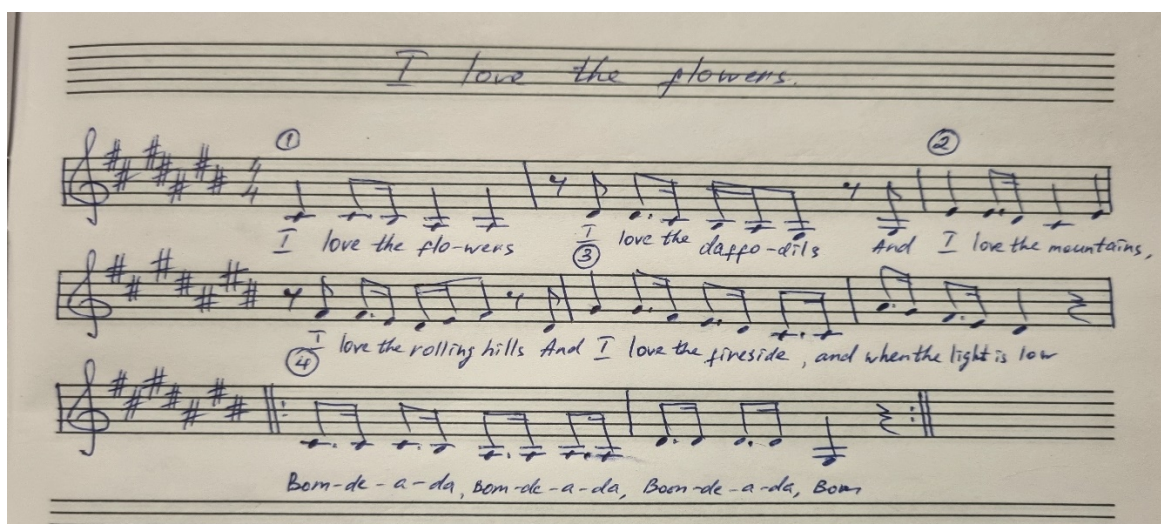 I love the flowers.
① ②
4/4
I love the flo-wers I love the daffo-dils And I love the mountains,
③
I love the rolling hills And I love the fireside, and when the light is low
④
Bom-de-a-da, Bom-de-a-da, Bom-de-a-da, Bom